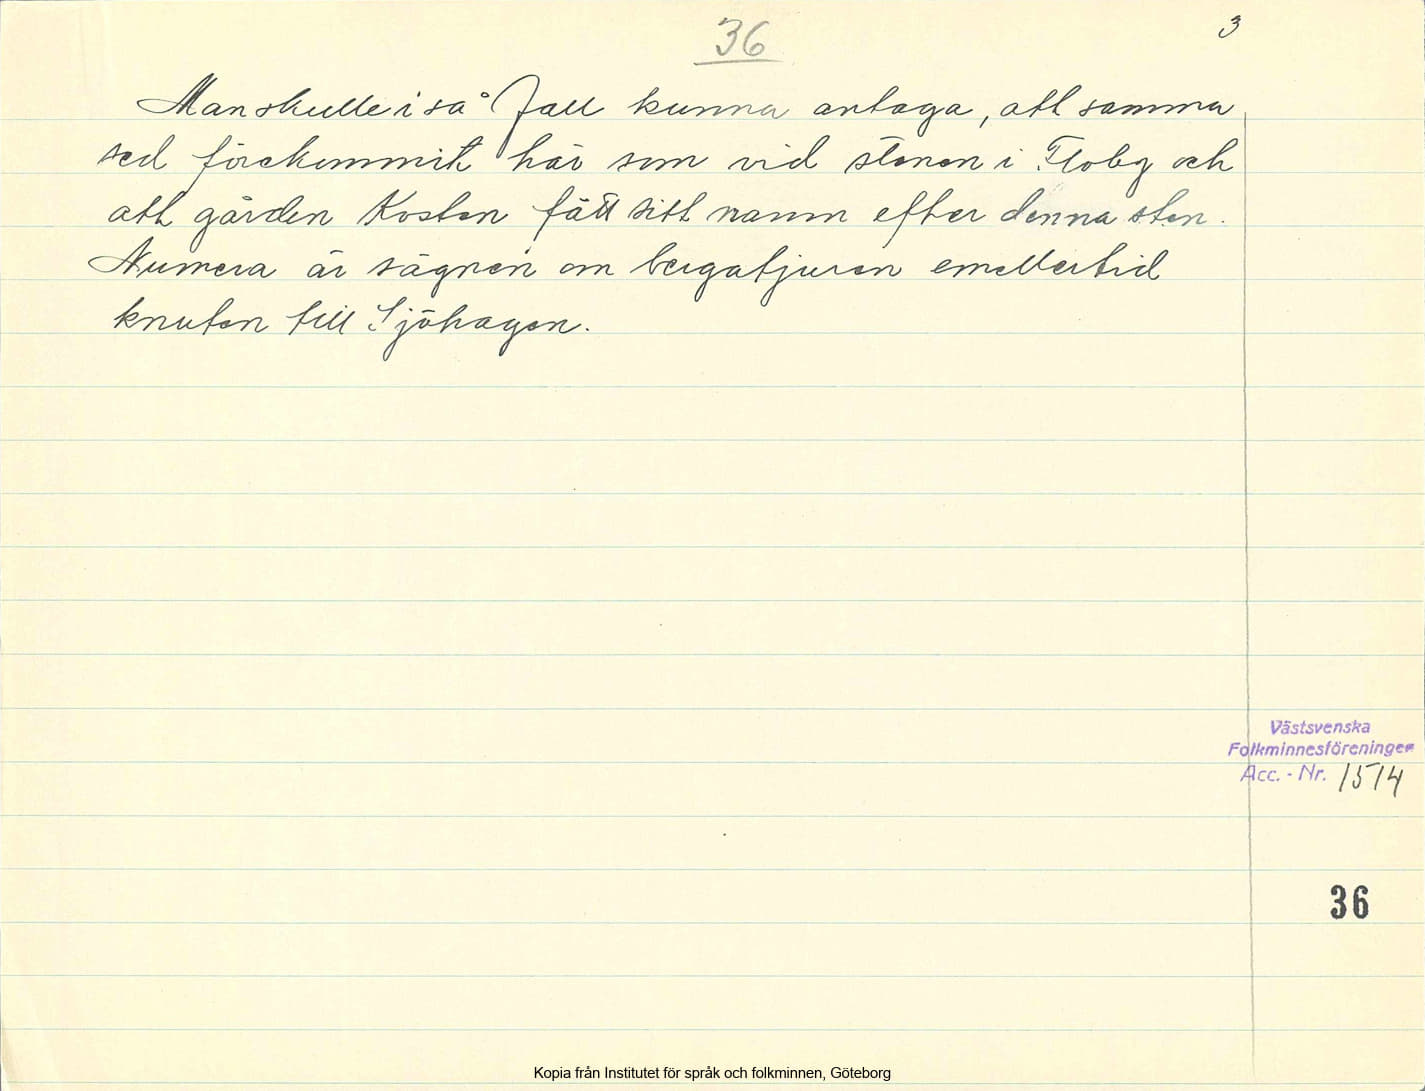 36
3
Man skulle i så fall kunna antaga, att samma
sed förekommit här som vid stenen i Floby och
att gården Kosten fått sitt namn efter denna sten.
Numera är sägnen om bergatjuren emellertid
knuten till Sjöhagen.
Västsvenska
Folkminnesföreningen
Acc. - Nr. 1514
36
Kopia från Institutet för språk och folkminnen, Göteborg